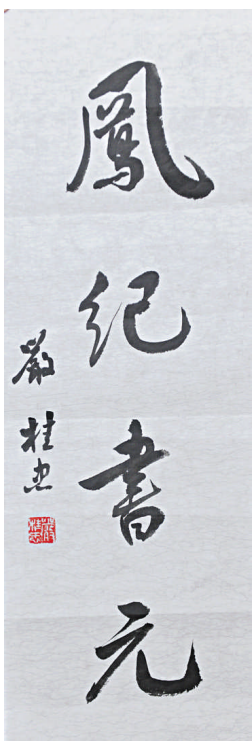 鳳紀書元
嚴桂忠